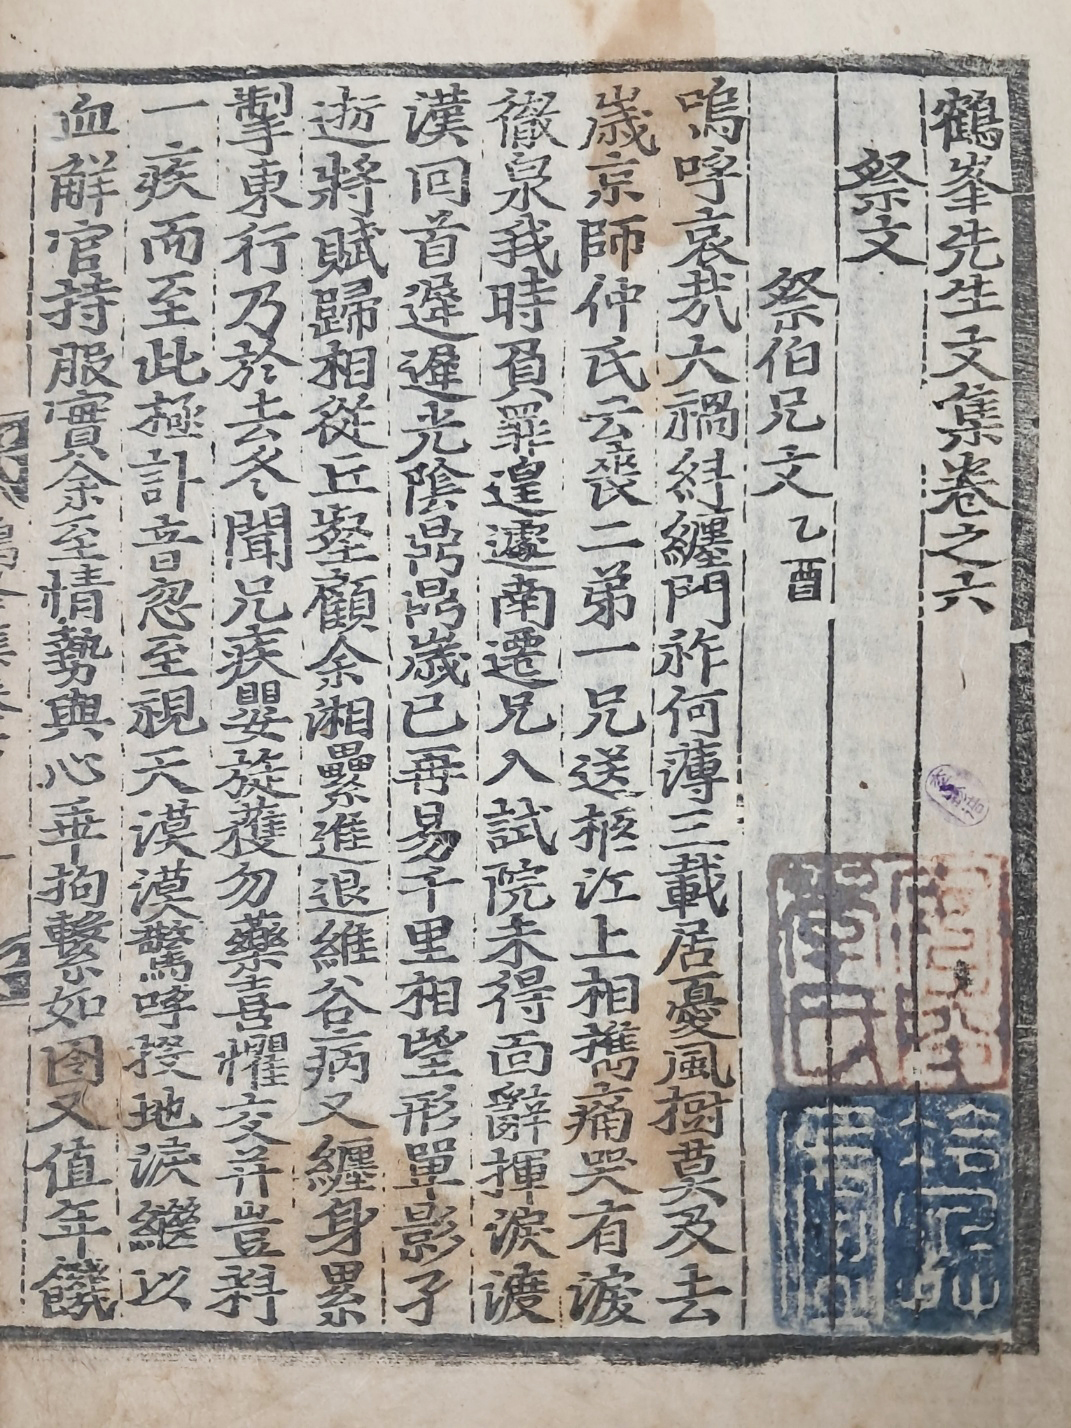 鶴峯先生文集卷之六
祭文
祭伯兄文 乙酉
嗚呼哀哉大禍糾纏門祚何薄三載居憂風樹莫及去
歲京師仲氏云喪二弟一兄送柩江上相携痛哭有淚
徹泉我時負罪遑遽南遷兄入試院未得面辭揮淚渡
漢回首遲遲光陰鼎鼎歲已再易千里相望形單影孑
逝將賦歸相從丘壑顧余湘纍進退維谷病又纏身累
掣東行乃於去冬聞兄疾嬰旋蒦勿藥喜懼交幷豈料
一疾而至此極訃音忽至視天漠漠驚呼投地淚繼以
血解官持服實余至情勢與心乖拘繫如囹又值年饑